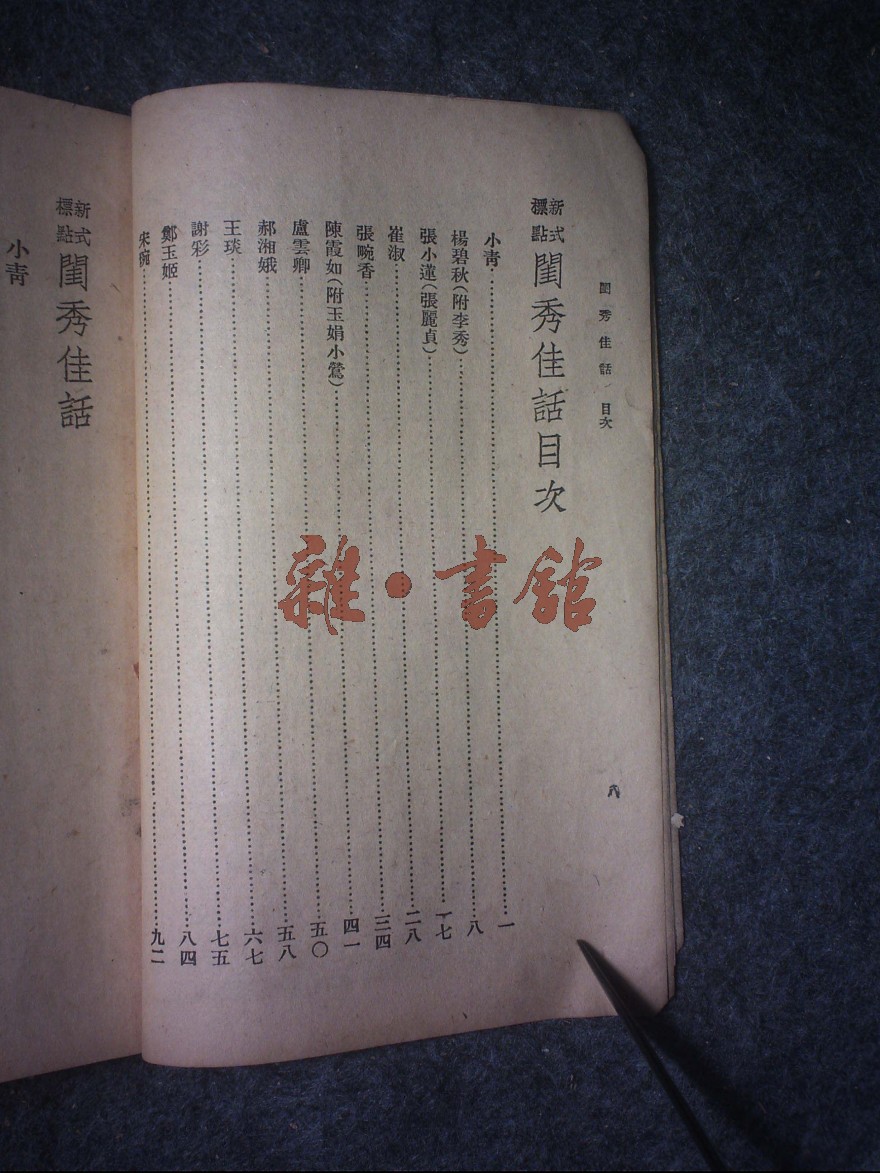 閨秀佳話 目次
新式標點 閨秀佳話目次
小青…一
楊碧秋(附李秀)…八
張小蓮(張麗貞)…一七
崔淑…二八
張畹香…三四
陳霞如(附玉娟小鶯)…四一
盧雲卿…五〇
郝湘娥…五八
王琰…六七
謝彩…七五
鄭玉姬…八四
宋琬…九二
八
新式標點 閨秀佳話
小青
雜·書館